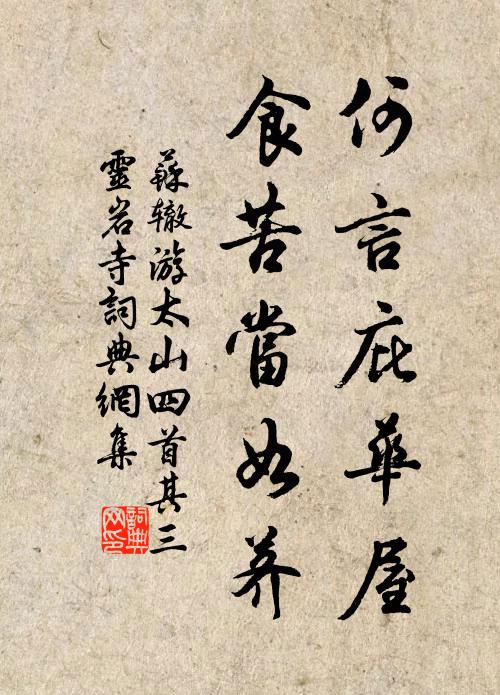 何言庇華屋
食苦當如荠
蘇辙游太山四首其三
靈岩寺詞典網集
詞典网印